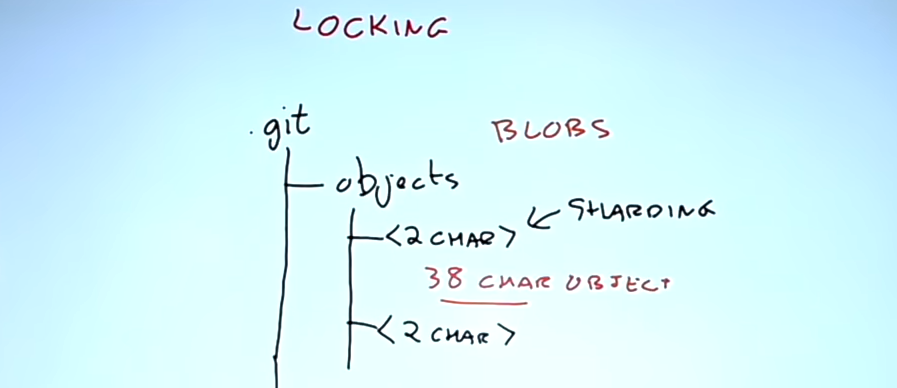 LOCKING
.git
BLOBS
objects
<2 CHAR>
SHARDING
38 CHAR OBJECT
<2 CHAR>